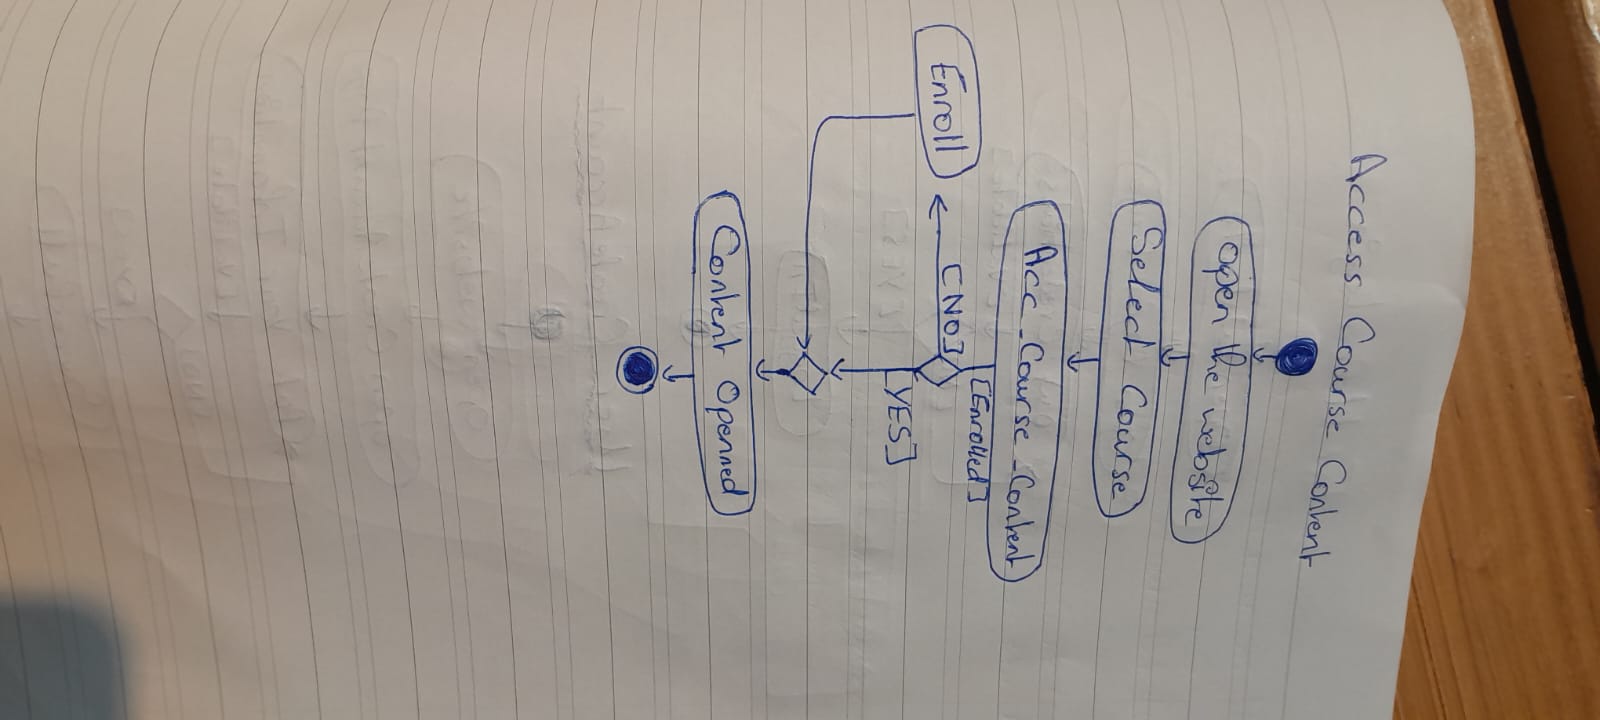 Access Course Content
open the website
Select Course
Acc_Course_Content
[Enrolled]
Enroll
[NO]
[YES]
Content Openned